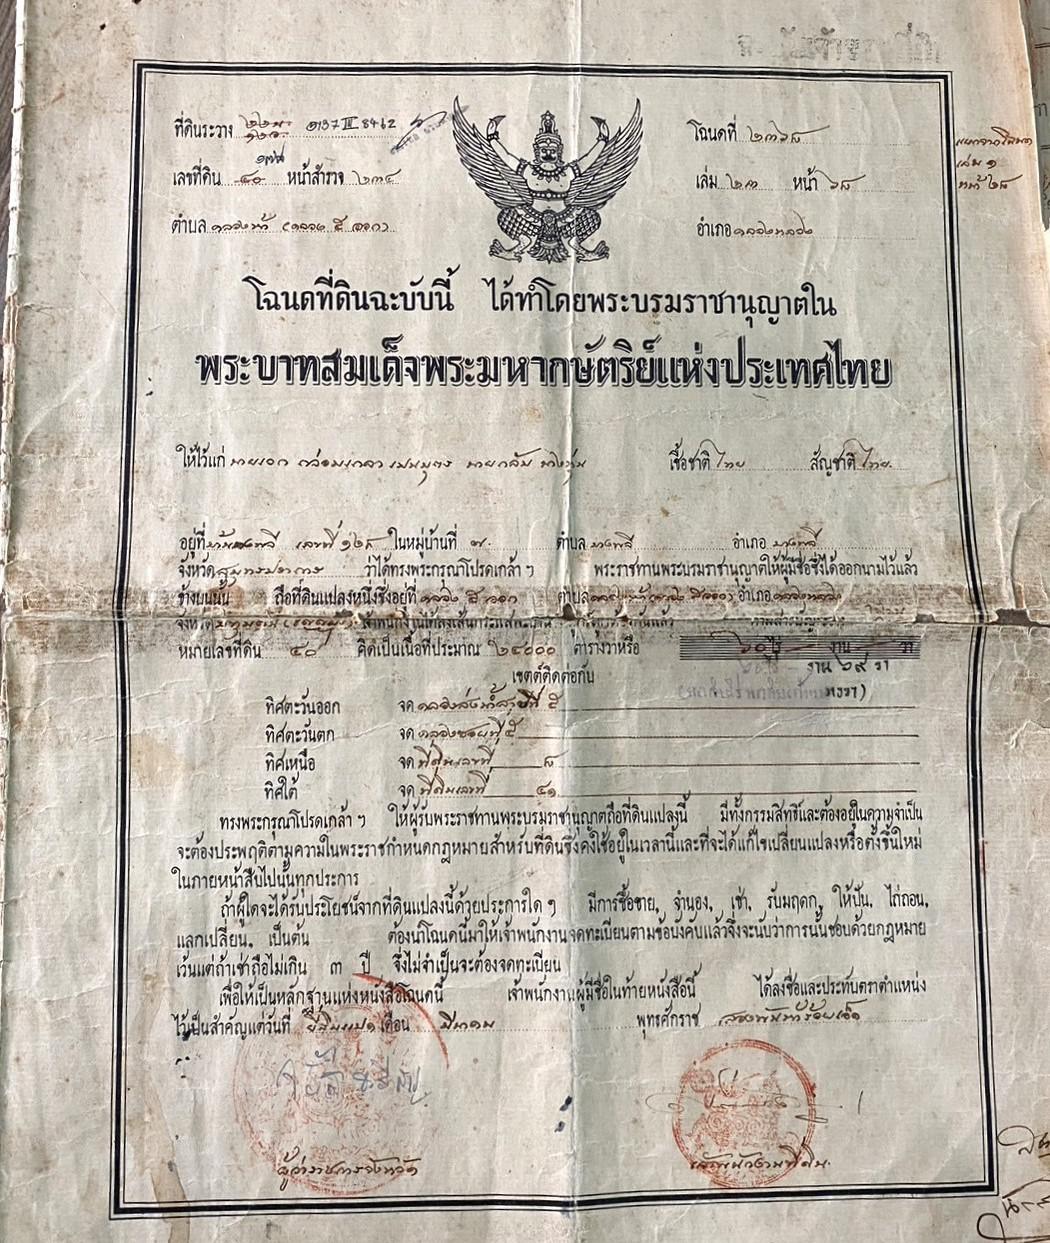 ที่ดินระวาง ๕๑๓๗ III ๘๔๖๒
โฉนดที่ ๒๓๖๘
เลขที่ดิน ๔๐ หน้าสำรวจ ๒๓๔
เล่ม ๒๓ หน้า ๖๘
ตำบล
อำเภอ คลองหลวง
โฉนดที่ดินฉะบับนี้ ได้ทำโดยพระบรมราชานุญาตใน
พระบาทสมเด็จพระมหากษัตริย์แห่งประเทศไทย
ให้ไว้แก่ นายเอก เชื้อชาติ ไทย สัญชาติ ไทย
อยู่ที่ เลขที่ ในหมู่บ้านที่ ๗ ตำบล บางพลี อำเภอ บางพลี
จังหวัด สมุทรปราการ ว่าได้ทรงพระกรุณาโปรดเกล้า ฯ พระราชทานพระบรมราชานุญาตให้ผู้มีชื่อซึ่งได้ออกนามไว้แล้ว
ข้างบนนั้น ถือที่ดินแปลงหนึ่งซึ่งอยู่ที่ คลอง ๕ ออก ตำบล อำเภอ คลองหลวง
จังหวัด
หมายเลขที่ดิน ๔๐ คิดเป็นเนื้อที่ประมาณ ๒๔๐๐๐ ตารางวาหรือ ๖๐ ไร่ งาน วา
งาน ๖๙ วา
เขตต์ติดต่อกับ
ทิศตะวันออก จด คลองส่งน้ำสายที่ ๕
ทิศตะวันตก จด คลองซอยที่ ๕
ทิศเหนือ จด ที่ดินเลขที่ ๘
ทิศใต้ จด ที่ดินเลขที่ ๔๑
ทรงพระกรุณาโปรดเกล้า ฯ ให้ผู้รับพระราชทานพระบรมราชานุญาตถือที่ดินแปลงนี้ มีทั้งกรรมสิทธิ์และต้องอยู่ในความจำเป็น
จะต้องประพฤติตามความในพระราชกำหนดกฎหมายสำหรับที่ดินซึ่งคงใช้อยู่ในเวลานี้และที่จะได้แก้ไขเปลี่ยนแปลงหรือตั้งขึ้นใหม่
ในภายหน้าสืบไปนั้นทุกประการ
ถ้าผู้ใดจะได้รับประโยชน์จากที่ดินแปลงนี้ด้วยประการใด ๆ มีการซื้อขาย, จำนอง, เช่า, รับมฤดก, ให้ปัน, ไถ่ถอน,
แลกเปลี่ยน, เป็นต้น ต้องนำโฉนดนี้มาให้เจ้าพนักงานจดทะเบียนตามข้อบังคับแล้วจึ่งจะนับว่าการนั้นชอบด้วยกฎหมาย
เว้นแต่ถ้าเช่าถือไม่เกิน ๓ ปี จึ่งไม่จำเป็นจะต้องจดทะเบียน
เพื่อให้เป็นหลักฐานแห่งหนังสือโฉนดนี้ เจ้าพนักงานผู้มีชื่อในท้ายหนังสือนี้ ได้ลงชื่อและประทับตราตำแหน่ง
ไว้เป็นสำคัญแต่วันที่ ยี่สิบแปด เดือน มีนาคม พุทธศักราช
ผู้ว่าราชการจังหวัด
เจ้าพนักงานที่ดิน